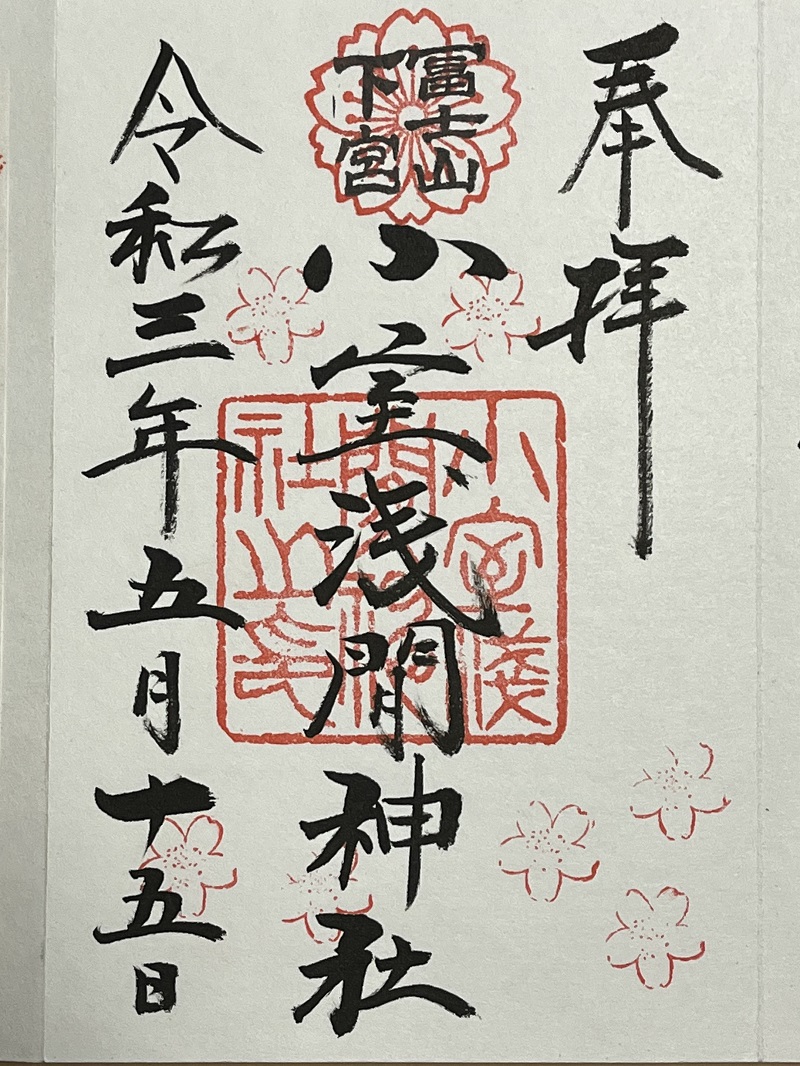 奉拝
富士山
下宮
小室浅間神社
小室浅
間神
社之印
令和三年五月十五日